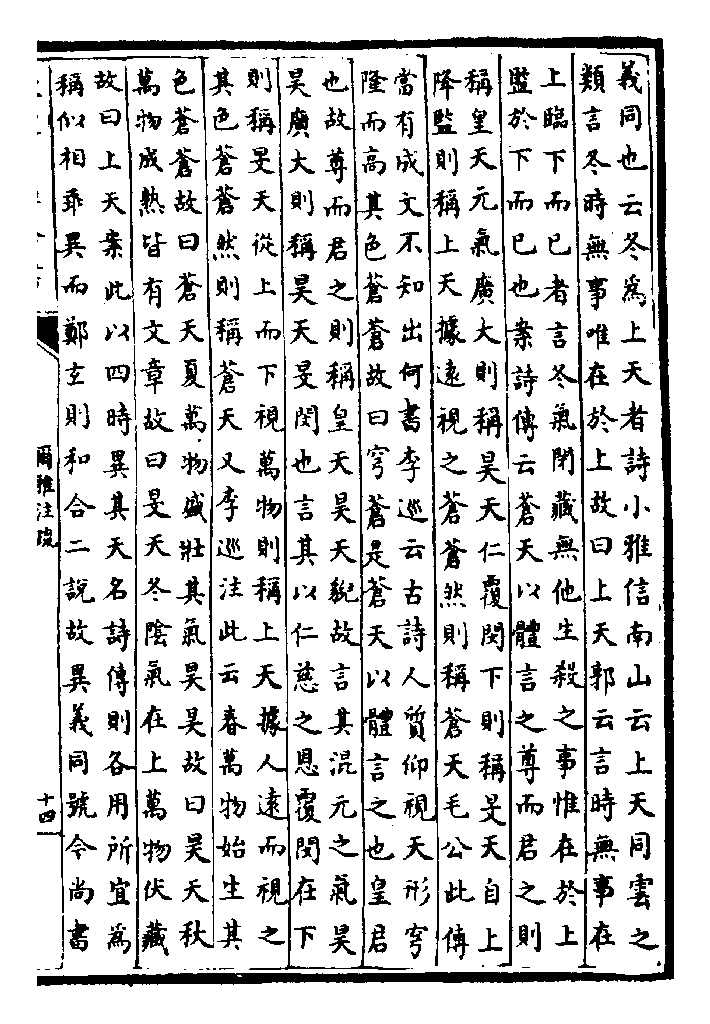 義同也云冬為上天者詩小雅信南山云上天同雲之
類言冬時無事唯在於上故曰上天郭云言時無事在
上臨下而已者言冬氣閉藏無他生殺之事惟在於上
監於下而已也案詩傳云蒼天以體言之尊而君之則
稱皇天元氣廣大則稱昊天仁覆閔下則稱旻天自上
降監則稱上天據遠視之蒼蒼然則稱蒼天毛公此傳
當有成文不知出何書李巡云古詩人質仰視天形穹
隆而高其色蒼蒼故曰穹蒼是蒼天以體言之也皇君
也故尊而君之則稱皇天昊天貌故言其混元之氣昊
昊廣大則稱昊天旻閔也言其以仁慈之恩覆閔在下
則稱旻天從上而下視萬物則稱上天據人遠而視之
其色蒼蒼然則稱蒼天又李巡注此云春萬物始生其
色蒼蒼故曰蒼天夏萬物盛壯其氣昊昊故曰昊天秋
萬物成熟皆有文章故曰旻天冬陰氣在上萬物伏藏
故曰上天案此以四時異其天名詩傳則各用所宜為
稱似相乖異而鄭玄則和合二說故異義同號今尚書
爾雅注疏
十四